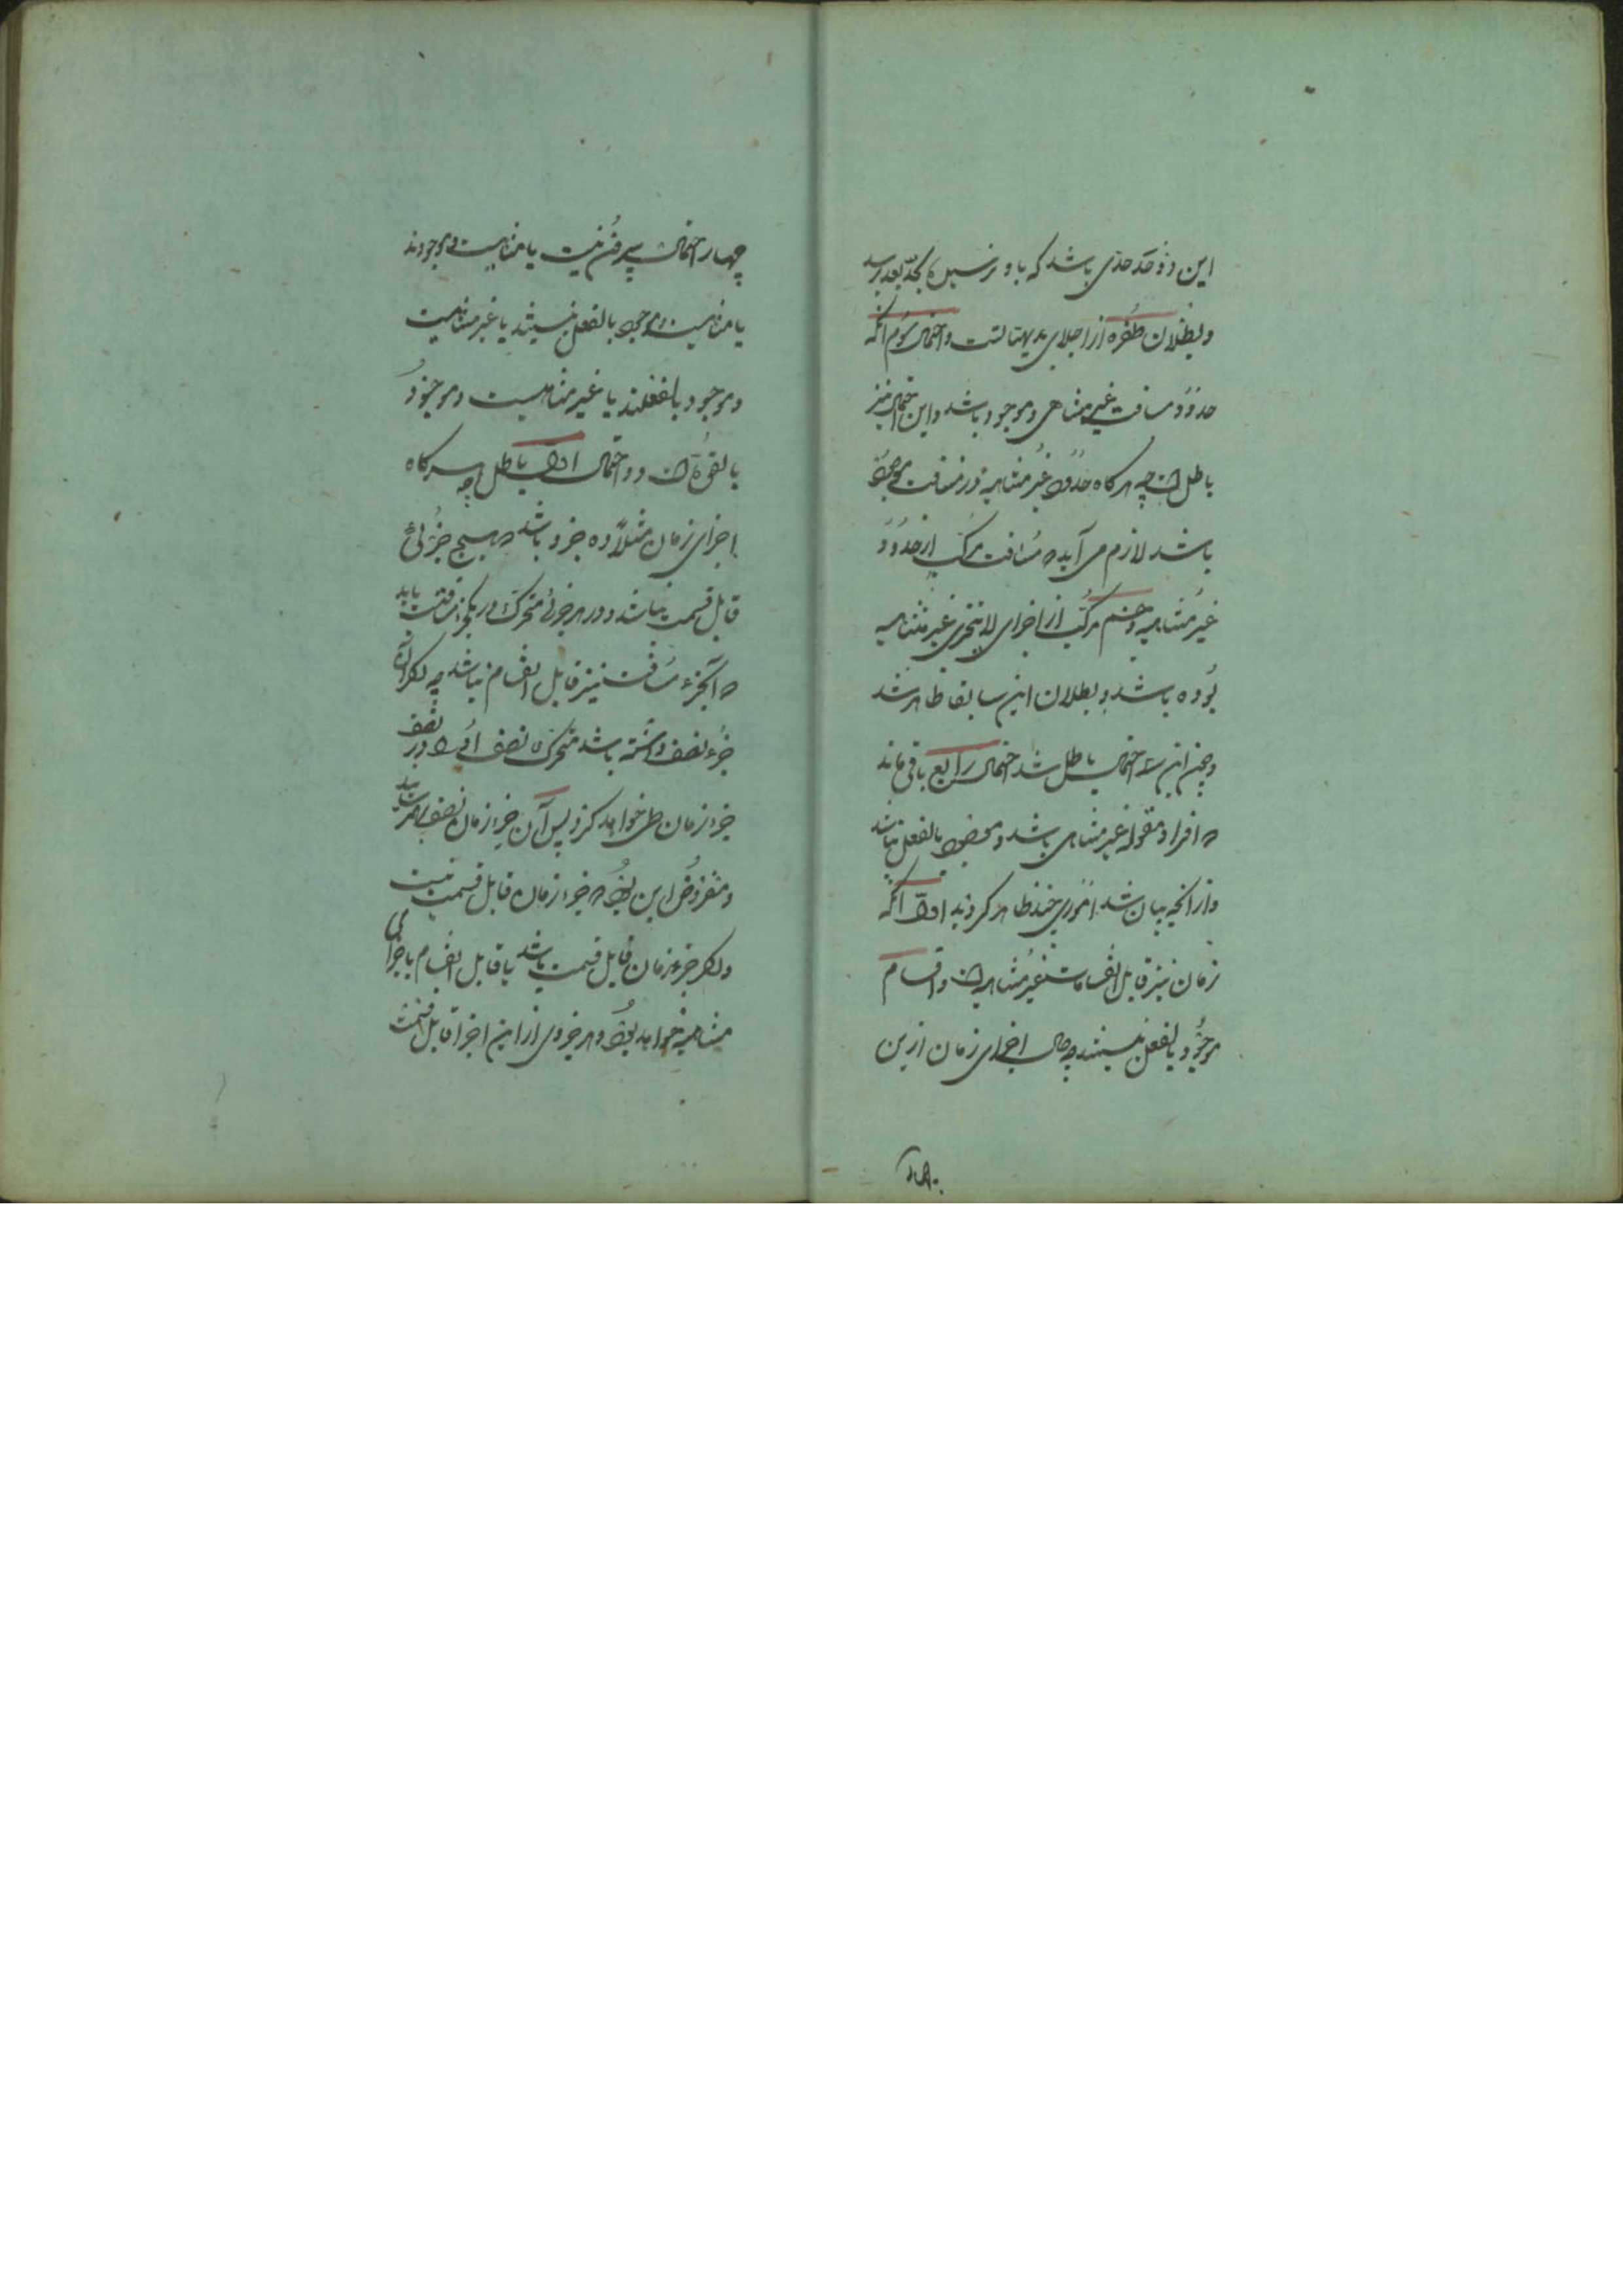 این دو حد حدی باشد که باو نرسیده بحد بعد برسد
و بطلان طفره از اجلای بدیهیاتست و احتمال سوم آنکه
حدود مسافت غیر متناهی و موجود باشد و این احتمال نیز
باطل است چه هر کاه حدود غیر متناهیه در مسافت موجود
باشد لازم می آید که مسافت مرکب از حدود
غیر متناهیه و جسم مرکب از اجزای لایتجزی غیر متناهیه
بوده باشد و بطلان این سابقا ظاهر شد
و چون این سه احتمال باطل شد احتمال رابع باقی ماند
که افراد مقوله غیر متناهی باشد و موجود بالفعل نباشد
و از آنچه بیان شد اموری چند ظاهر کردید اول آنکه
زمان نیز قابل انقسامات غیر متناهیه است و اقسام
موجود بالفعل نیستند چه حال اجزای زمان ازین
چهار احتمال بیرون نیست یا متناهیست و موجودند
یا متناهیست و موجود بالفعل نیستند یا غیر متناهیست
و موجود بالفعلند یا غیر متناهیست و موجود
بالقوة است و دو احتمال اول باطل چه هر کاه
اجزای زمان مثلاً ده جزو باشد که هیچ جزئی
قابل قسمت نباشد و در هر جزئی متحرک در یکجزء مسافتست باید
که آنجزء مسافت نیز قابل انقسام نباشد چه اکر آن
جزء نصف داشته باشد متحرک نصف اول را در نصف
جزء زمان طی خواهد کرد پس آن جزء زمان نصف بهمرسانید
و مفروض این بود که جزء زمان قابل قسمت نیست
و اکر جزء زمان قابل قسمت باشد یا قابل انقسام باجزای
متناهیه خواهد بود و هر جزوی از این اجزا قابل قسمت